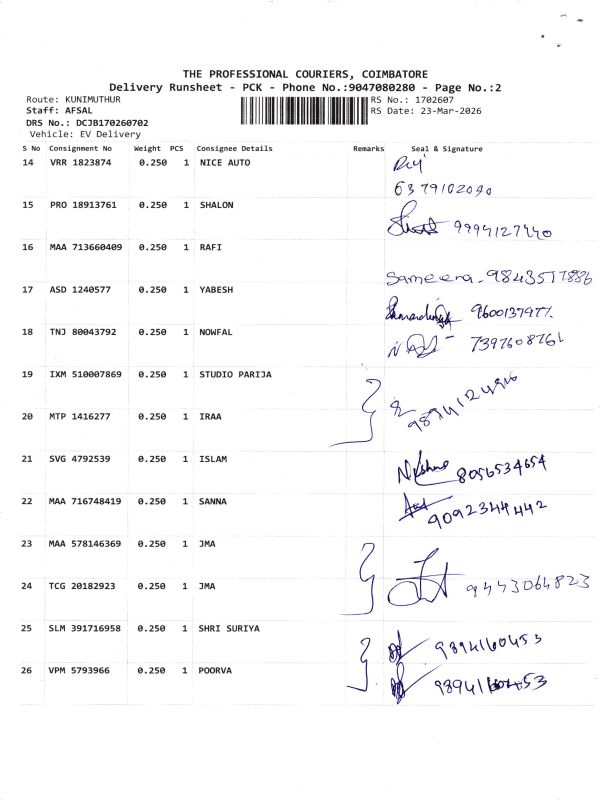 THE PROFESSIONAL COURIERS, COIMBATORE
Delivery Runsheet - PCK - Phone No.:9047080280 - Page No.:2
Route: KUNIMUTHUR
RS No.: 1702607
Staff: AFSAL
RS Date: 23-Mar-2026
DRS No.: DCJB170260702
Vehicle: EV Delivery
S No Consignment No Weight PCS Consignee Details Remarks Seal & Signature
14 VRR 1823874 0.250 1 NICE AUTO
6379102090
15 PRO 18913761 0.250 1 SHALON
9994127440
16 MAA 713660409 0.250 1 RAFI
Sameena - 9843517886
17 ASD 1240577 0.250 1 YABESH
18 TNJ 80043792 0.250 1 NOWFAL
7397608761
19 IXM 510007869 0.250 1 STUDIO PARIJA
20 MTP 1416277 0.250 1 IRAA
21 SVG 4792539 0.250 1 ISLAM
8056534654
22 MAA 716748419 0.250 1 SANNA
9092344442
23 MAA 578146369 0.250 1 JMA
24 TCG 20182923 0.250 1 JMA
9443064823
25 SLM 391716958 0.250 1 SHRI SURIYA
9894160453
26 VPM 5793966 0.250 1 POORVA
9894160453